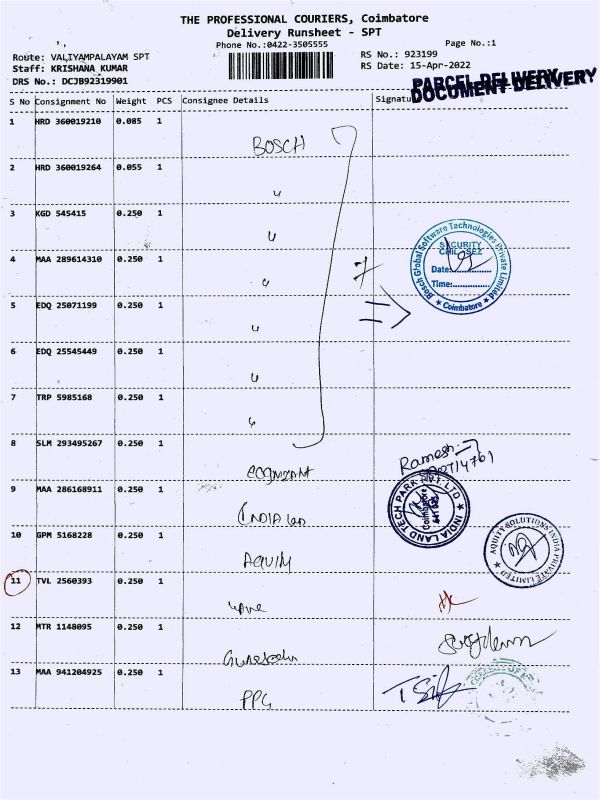 THE PROFESSIONAL COURIERS, Coimbatore
Delivery Runsheet - SPT
Phone No.:0422-3505555
Page No.:1
Route: VALIYAMPALAYAM SPT
Staff: KRISHANA KUMAR
DRS No.: DCJB92319901
RS No.: 923199
RS Date: 15-Apr-2022
PARCEL DELIVERY
DOCUMENT DELIVERY
S No Consignment No Weight PCS Consignee Details Signatu
1 HRD 360019210 0.085 1
BOSCH
2 HRD 360019264 0.055 1
"
3 KGD 545415 0.250 1
"
4 MAA 289614310 0.250 1
"
5 EDQ 25071199 0.250 1
"
6 EDQ 25545449 0.250 1
"
7 TRP 5985168 0.250 1
"
7
Bosch Global Software Technologies Private Limited
SECURITY
CHIL SEZ
Date:
Time:
Coimbatore
8 SLM 293495267 0.250 1
COGNIZANT
Ramesh
9 MAA 286168911 0.250 1
INDIA
INDIA LAND TECH PARK PVT. LTD
Coimbatore
10 GPM 5168228 0.250 1
AQUITY
AQUITY SOLUTIONS INDIA PRIVATE LIMITED
11 TVL 2560393 0.250 1
12 MTR 1148095 0.250 1
13 MAA 941204925 0.250 1
PPG